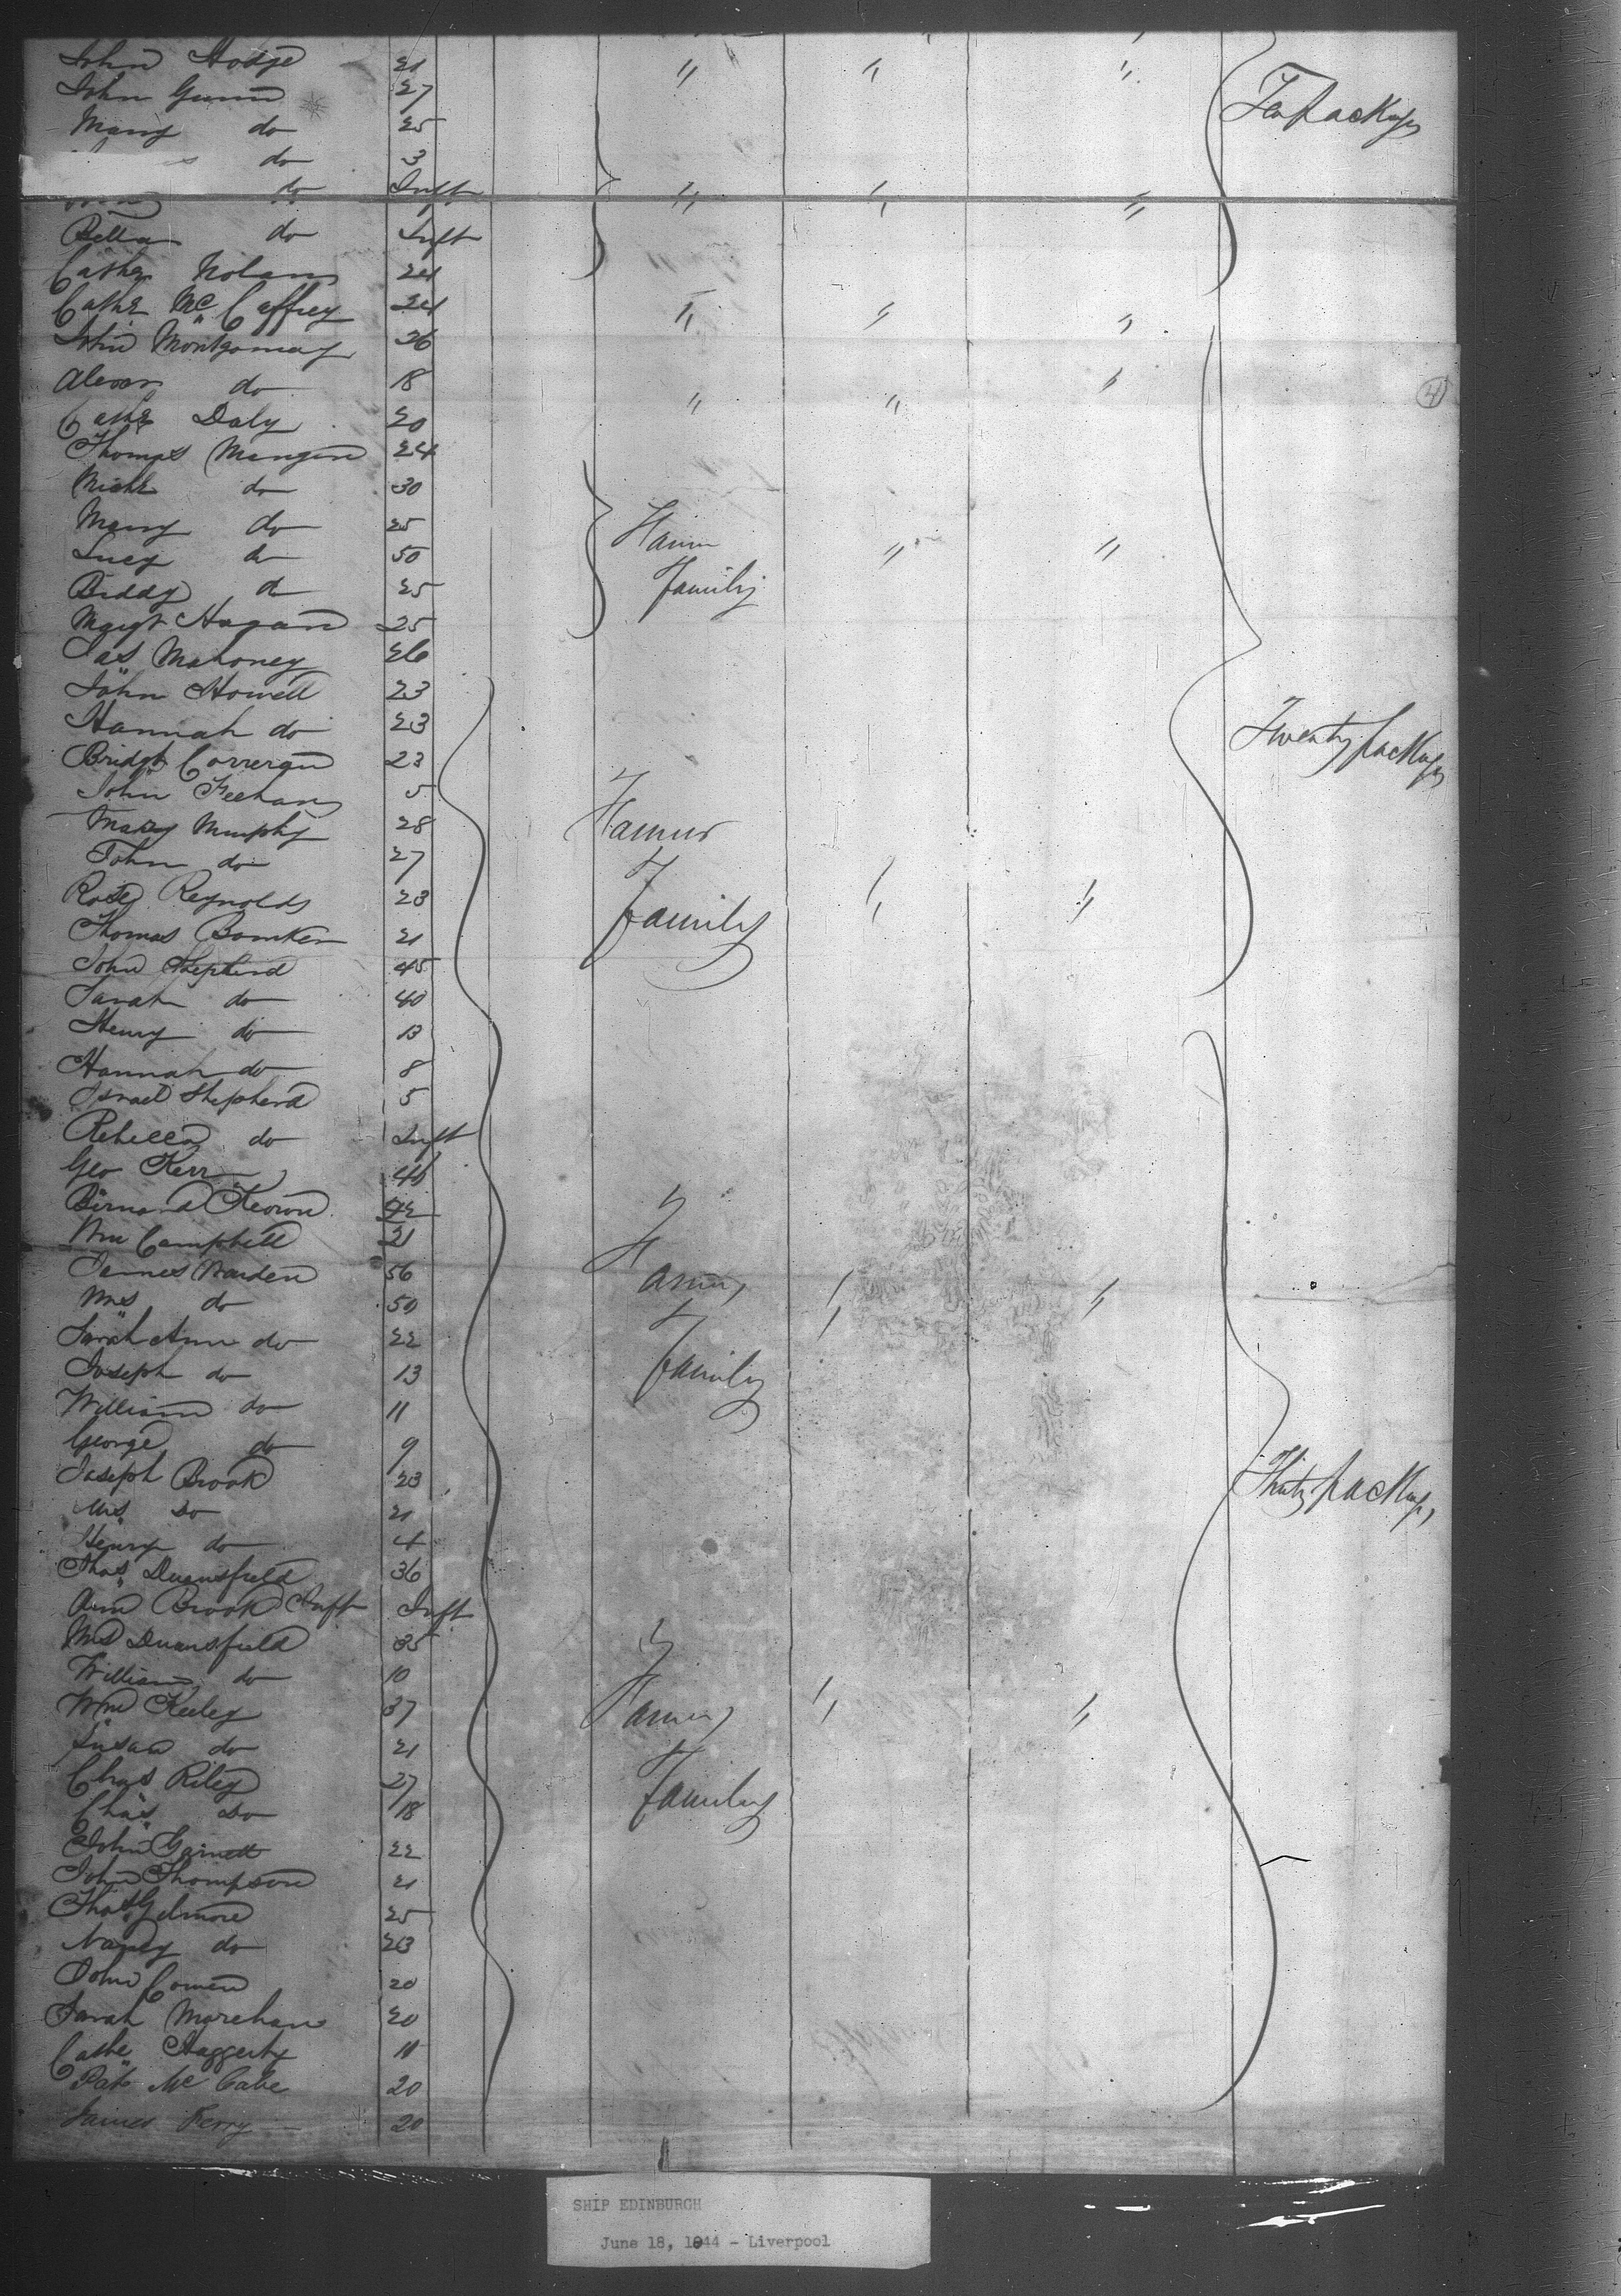 John Hodge 21 " " "
John Gunn 27
Mary do 25
s do 3
do Inft " " "
Bella do Inft
Cathe Nolan 24
Cathe McCaffrey 24 " " "
John Montgomery 26
Alexr do 18 "
Cathe Daly 20 " "
Thomas Mangin 24
Michl do 30
Mary do 25
Lucy do 50 " "
Biddy do 25
Family
Margt Hagan 25
Jas Mahoney 26
John Howell 23
Hannah do 23
Twenty packages
Bridgt Corrergin 23
John Feehan 5
Mary Murphy 28
John do 27
Rose Reynolds 23 " "
Family
Thomas 21
John Shepherd 45
Sarah do 40
Henry do 13
Hannah do 8
Israel Shepherd 5
Rebecca do Inft
Geo Kerr
Bernard Keown 42
Wm Campbell 21
James Warden 56
Mrs do 50 " "
Sarah Ann do 22
Joseph do 13
Family
William do 11
George do 9
Joseph Brook 23
Mrs Do 21
Thirty packages
Henry do 4
Thos Duensfield 36
Ann Brook Inft Inft
Mrs Duensfield 35
William do 10
Wm Keeley 37 " "
Susan do 21
Chas Riley 27
Family
Chas Do 18
John Garnett 22
John Thompson 21
Thos Gilmore 25
Nancy do 23
John Cowen 20
Sarah Morehan 20
Cathe Haggerty 11
Pat McCabe 20
James Ferry 20
Ten packages
4
SHIP EDINBURGH
June 18, 1844 - Liverpool